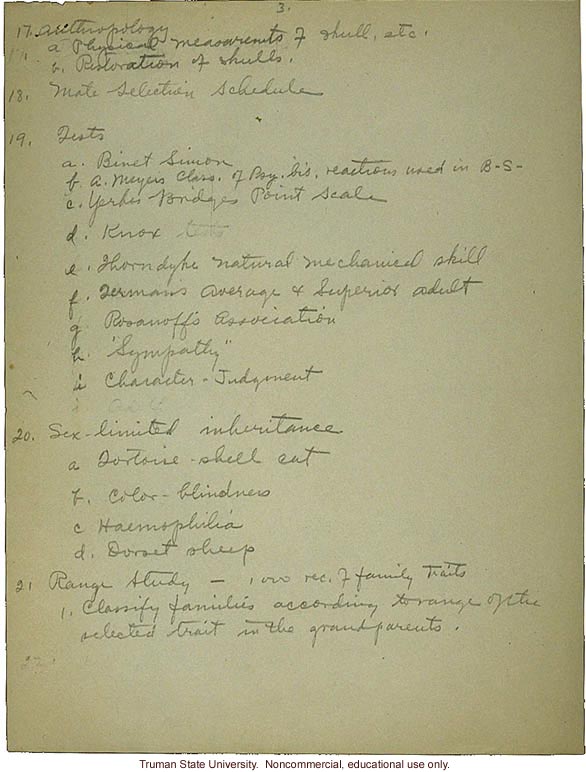 3.
17. Anthropology
a Physical measurements of skull, etc.
b. Restoration of skulls.
18. Mate Selection Schedule
19. Tests
a. Binet Simon
b. A. Meyers Class. of Psy. bis. reactions used in B-S-
c. Yerkes Bridges Point Scale
d. Knox tests
e. Thorndyke natural mechanical skill
f. Termans Average & Superior adult
g Rosanoff's Association
h. "Sympathy"
i Character-Judgment
20. Sex-limited inheritance
a Tortoise-shell cat
b. Color-blindness
c Haemophilia
d. Dorset sheep
21 Range Study — 1000 rec. of family traits
1. Classify families according to range of the
selected trait in the grandparents.
22.
Truman State University. Noncommercial, educational use only.